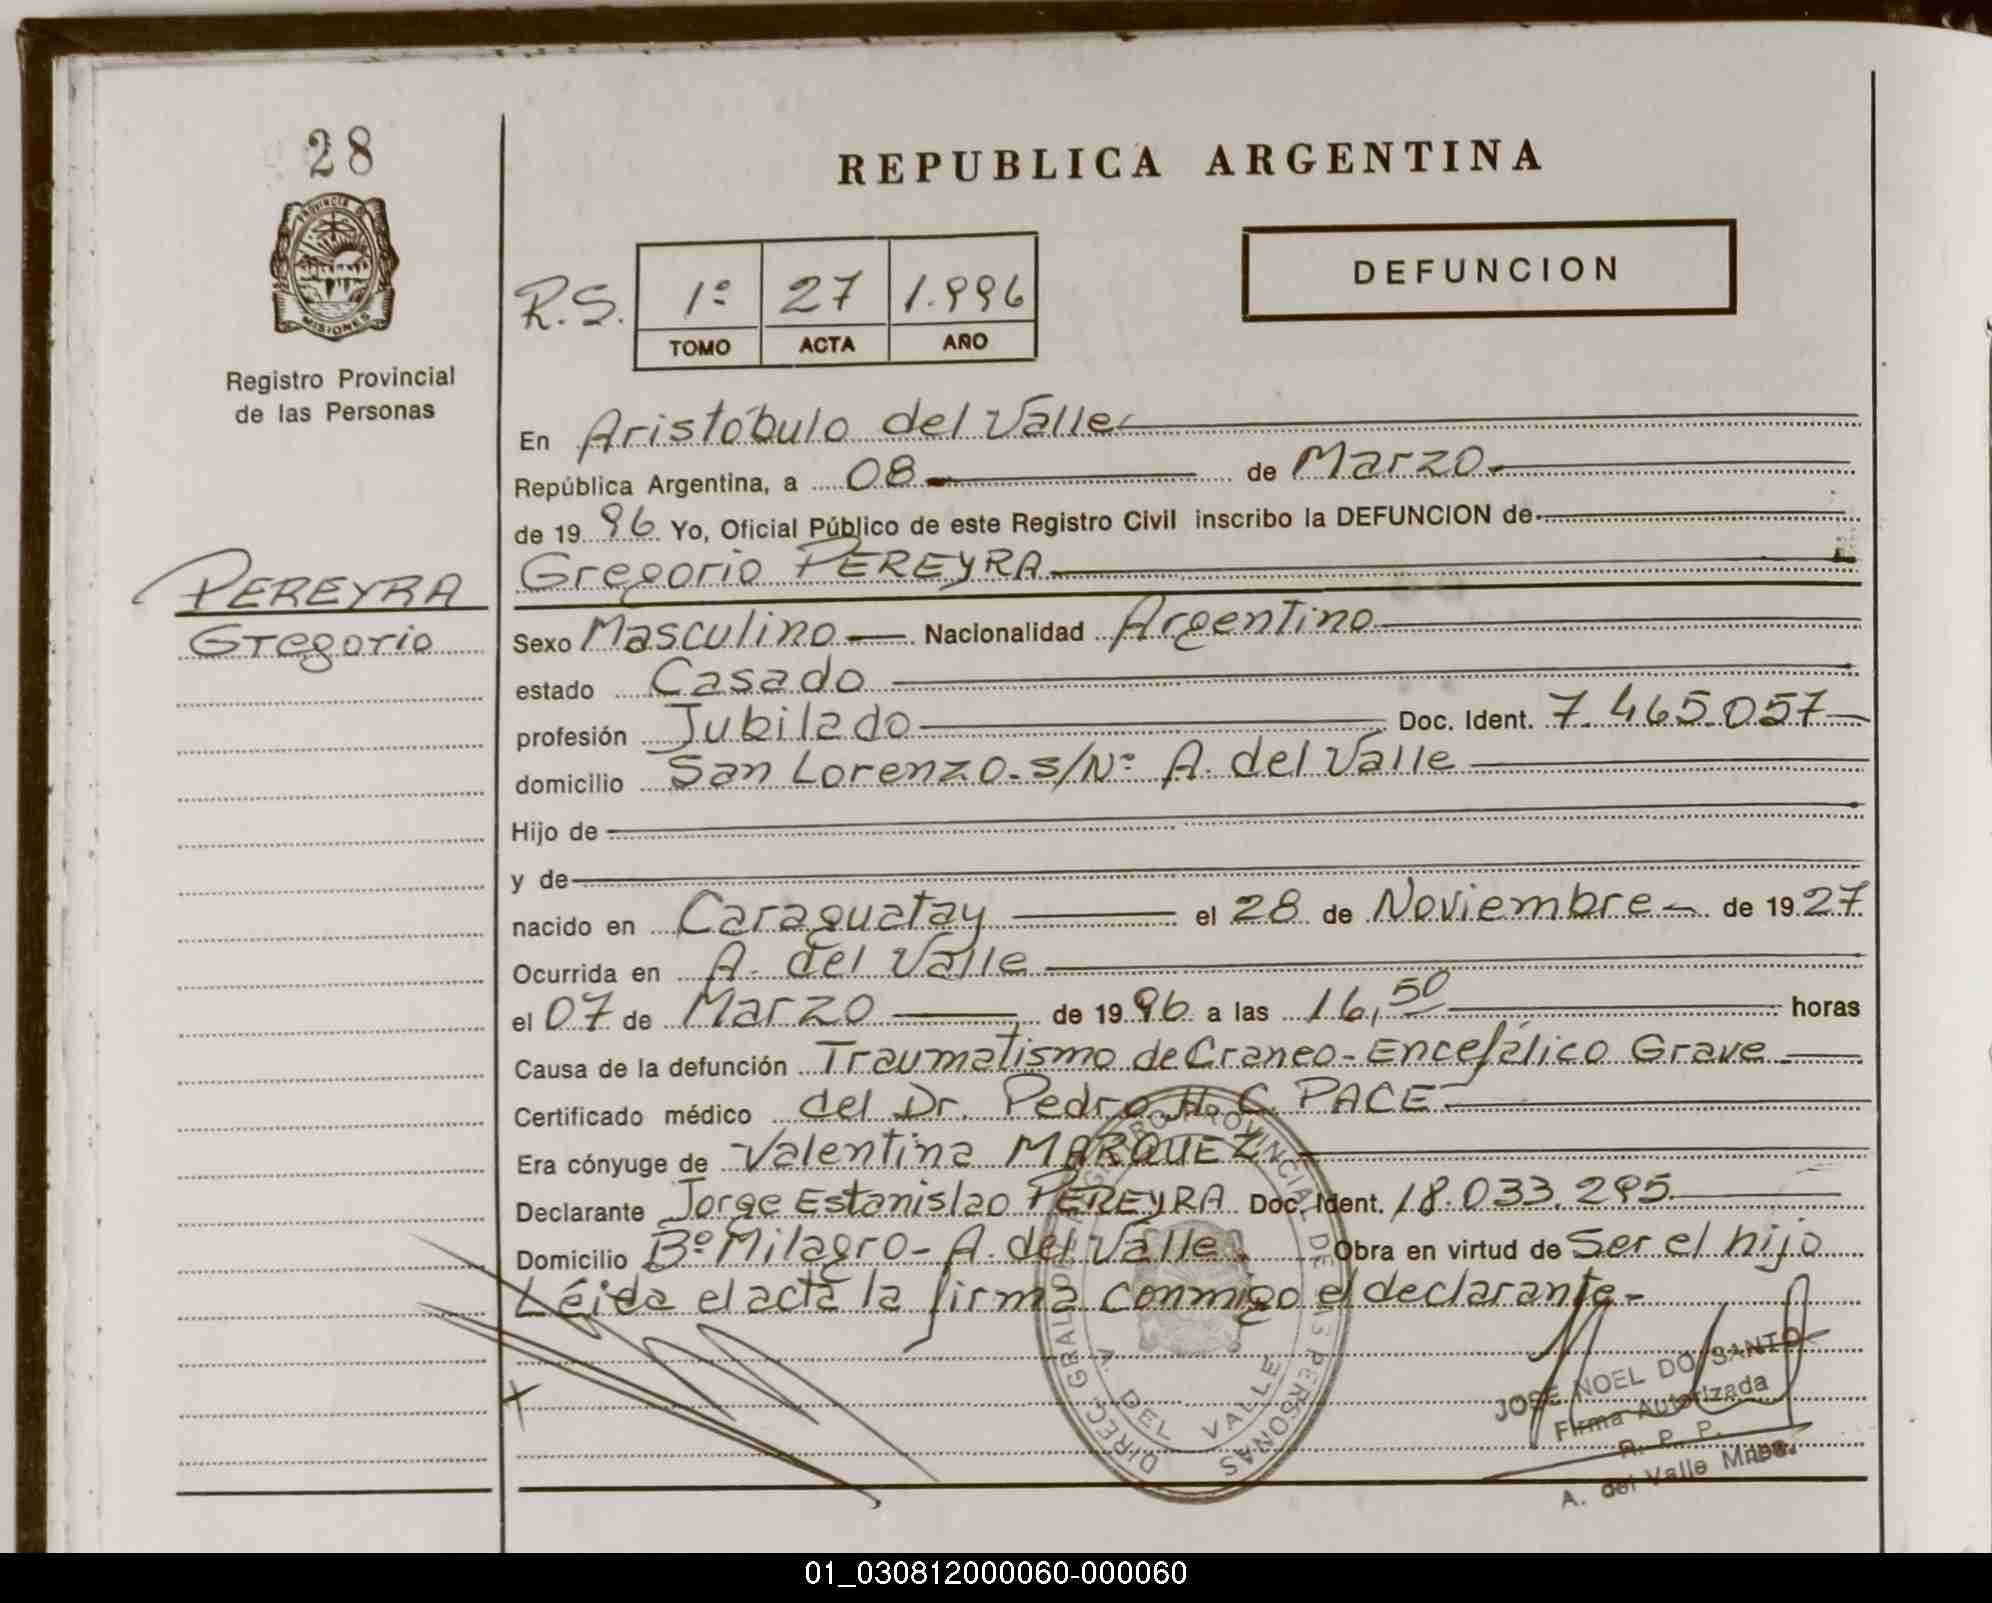 28
PROVINCIA DE
MISIONES
Registro Provincial
de las Personas
PEREYRA
Gregorio
REPUBLICA ARGENTINA
R.S. 1º 27 1.996
TOMO ACTA AÑO
DEFUNCION
En Aristóbulo del Valle
República Argentina, a 08 de Marzo
de 19 96 Yo, Oficial Público de este Registro Civil inscribo la DEFUNCION de
Gregorio PEREYRA
Sexo Masculino Nacionalidad Argentino
estado Casado
profesión Jubilado Doc. Ident. 7.465.057
domicilio San Lorenzo. s/Nº A. del Valle
Hijo de
y de
nacido en Caraguatay el 28 de Noviembre de 19 27
Ocurrida en A. del Valle
el 07 de Marzo de 19 96 a las 16,50 horas
Causa de la defunción Traumatismo de Craneo-Encefálico Grave
Certificado médico del Dr. Pedro H. C. PACE
Era cónyuge de Valentina MARQUEZ
Declarante Jorge Estanislao PEREYRA Doc. Ident. 18.033.295
Domicilio Bº Milagro- A. del Valle. Obra en virtud de Ser el hijo
Léida el acta la firma conmigo el declarante-
DIREC. GRAL. DEL REGISTRO PROVINCIAL DE LAS PERSONAS
A. DEL VALLE
JOSE NOEL DO SANTO
Firma Autorizada
R. P. P.
A. del Valle Mnes.
01_030812000060-000060